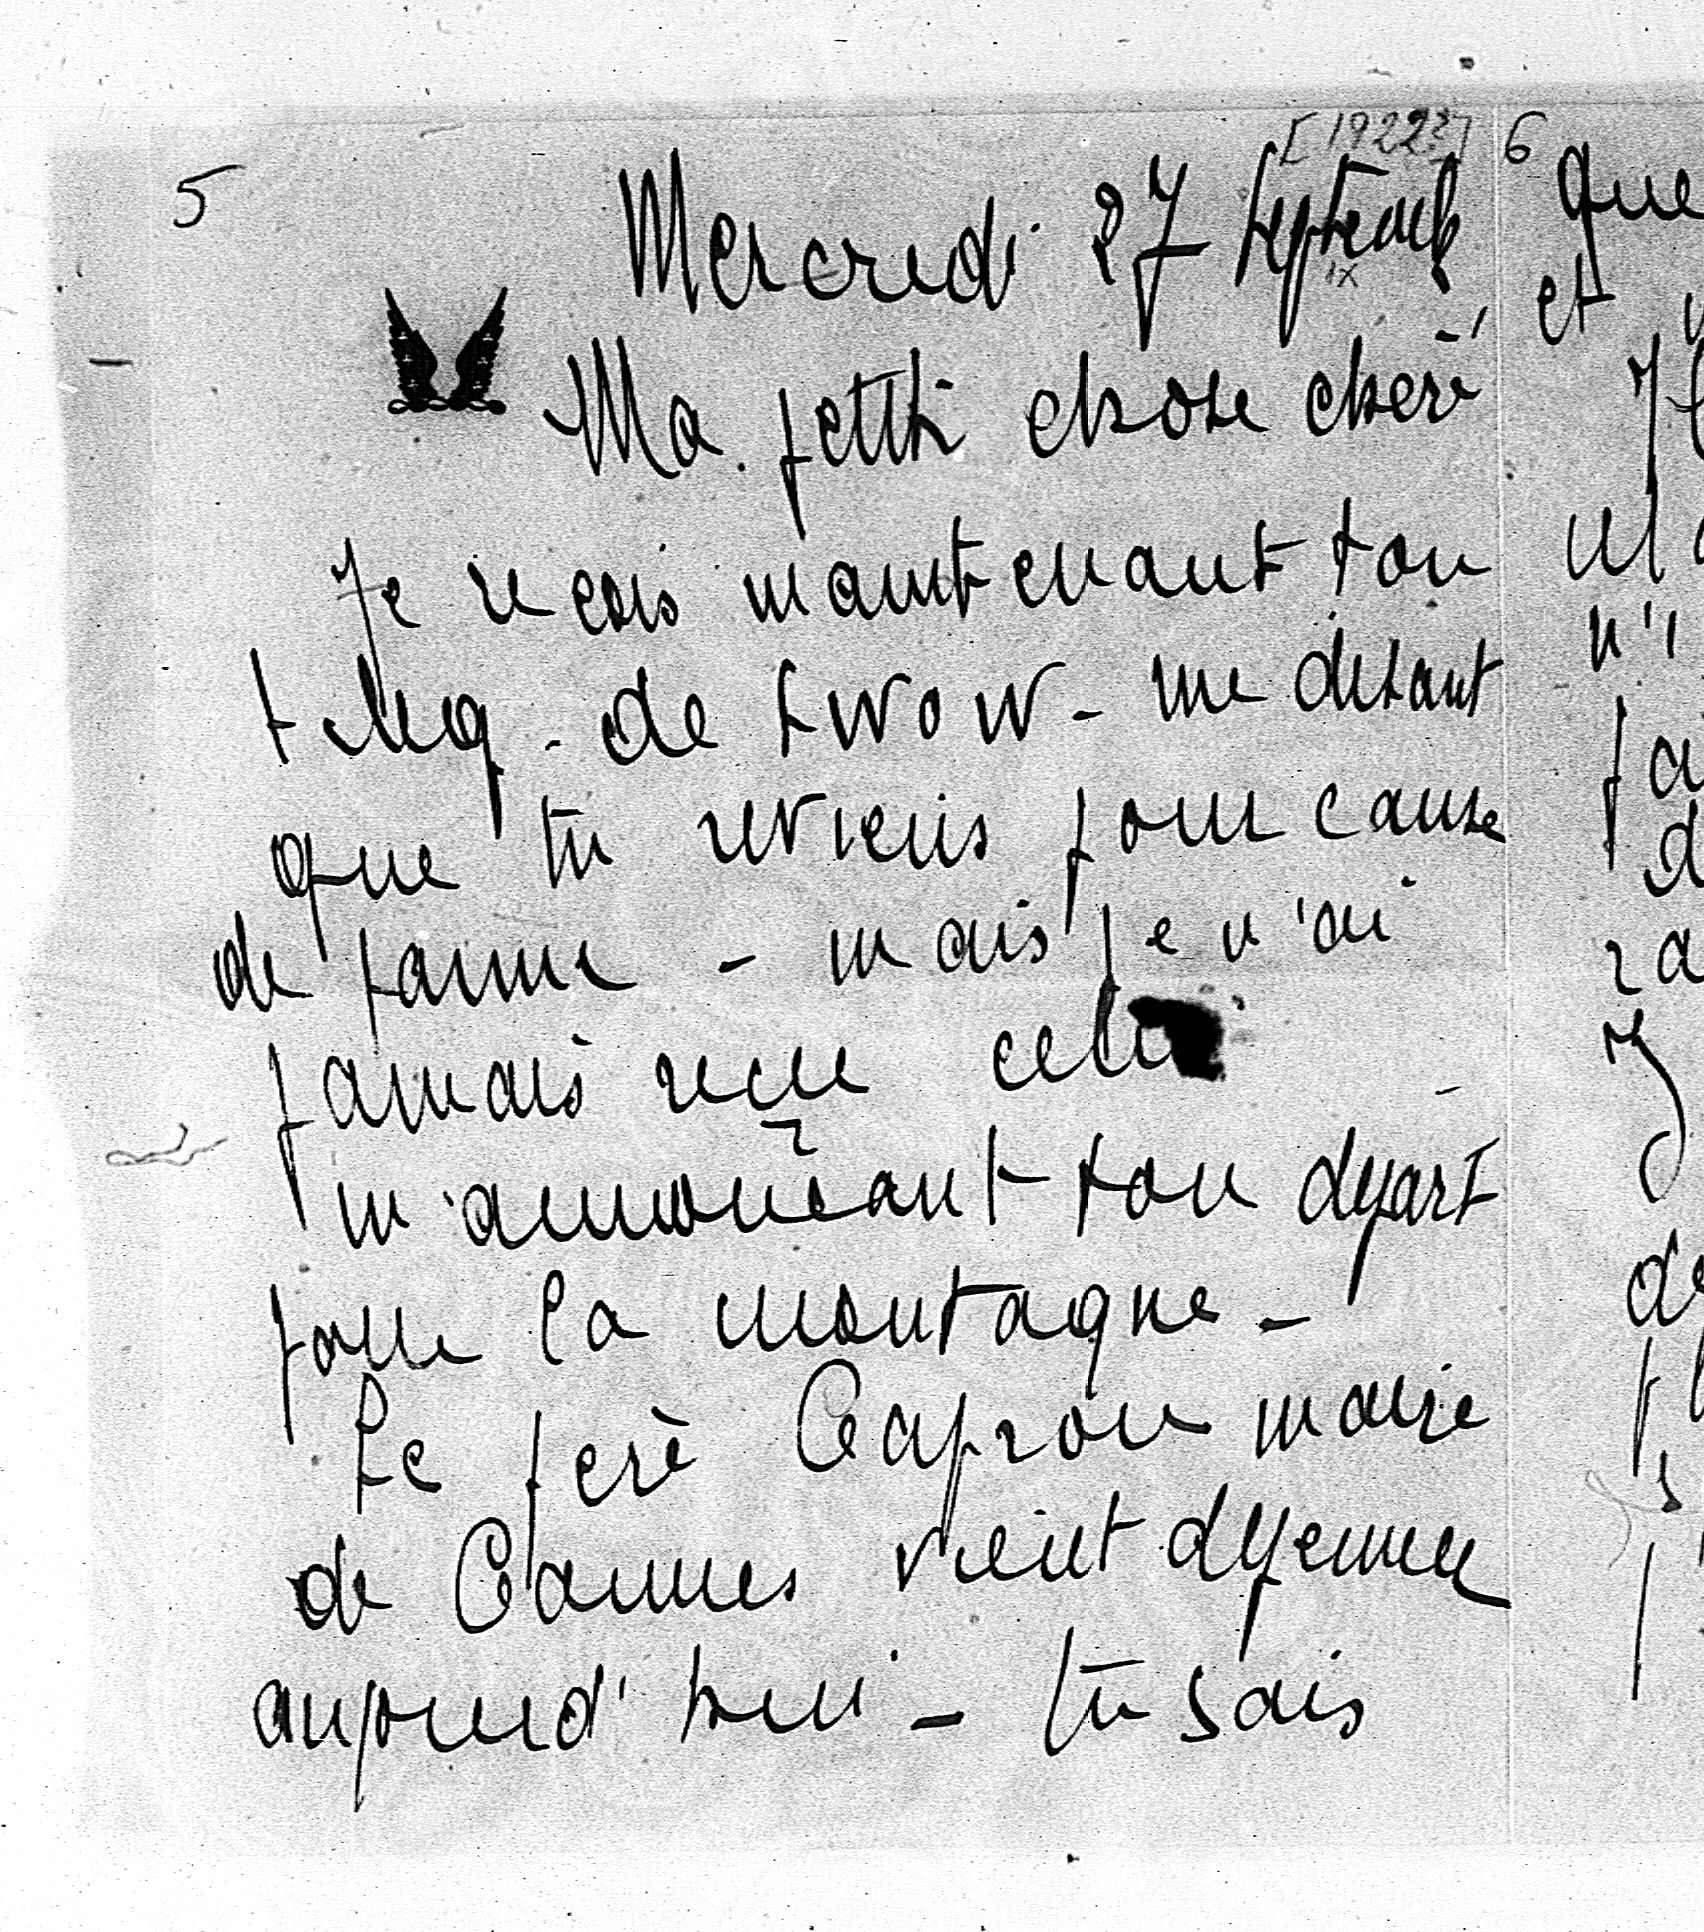 5
[1922?]
Mercredi 27 Septembre
IX
Ma petite chose cheri
Je recois maintenant ton
teleg. de Lwow - me disant
que tu reviens pour cause
de
- mais je n'ai
jamais recu celui
m'annoncant ton depart
pour la montagne -
Le perè Capron maire
de Cannes vient dejeuner
aujourd'hui - tu sais
6
que
et